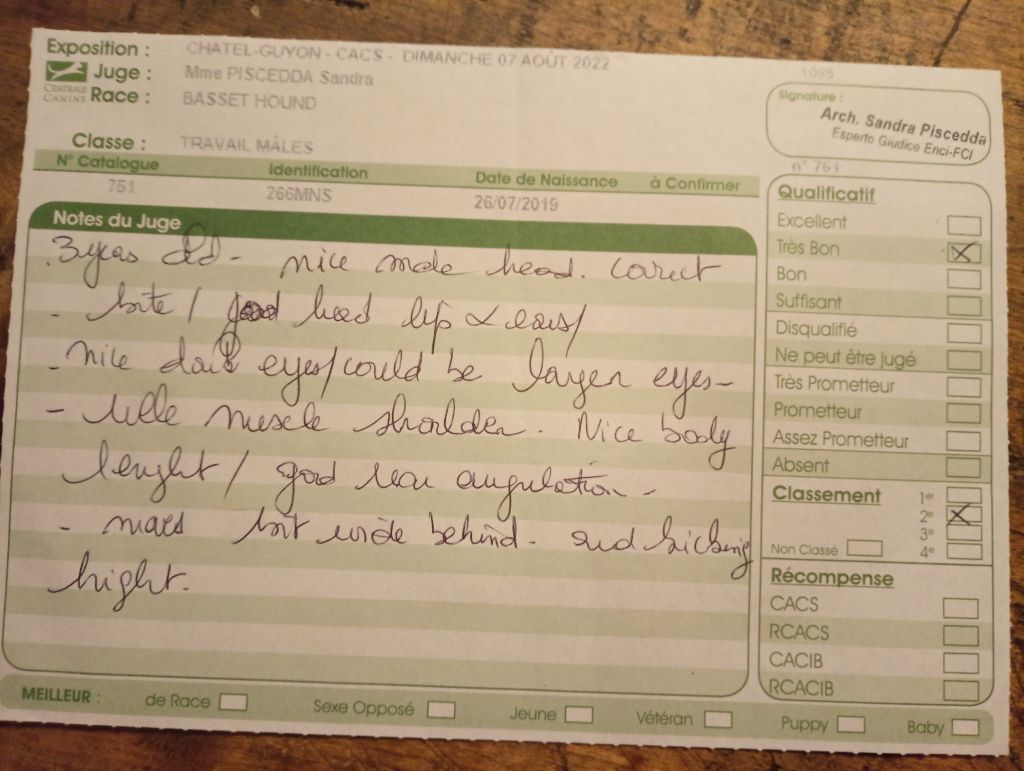 Exposition : CHATEL-GUYON - CACS - DIMANCHE 07 AOÛT 2022
1095
Juge : Mme PISCEDDA Sandra
CENTRALE CANINE
Race : BASSET HOUND
Signature :
Arch. Sandra Piscedda
Esperto Giudice Enci-FCI
Classe : TRAVAIL MÂLES
N° Catalogue Identification Date de Naissance à Confirmer
751 266MNS 26/07/2019
n° 751
Notes du Juge
3 years old - nice male head. correct
- bite / good head lip & ears/
- nice dark eyes/could be larger eyes-
- muscle shoulder. Nice body
lenght / good rear angulation -
- moves bit wide behind - and kicking
hight.
Qualificatif
Excellent
Très Bon
Bon
Suffisant
Disqualifié
Ne peut être jugé
Très Prometteur
Prometteur
Assez Prometteur
Absent
Classement 1er
2e
3e
Non Classé 4e
Récompense
CACS
RCACS
CACIB
RCACIB
MEILLEUR : de Race Sexe Opposé Jeune Vétéran Puppy Baby